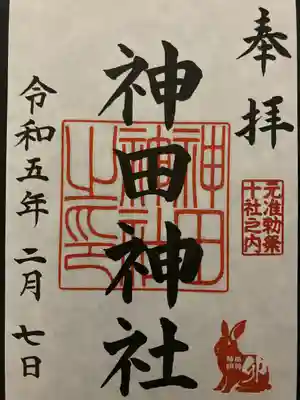 奉拝
元准勅祭
十社之内
神田神社
神田
神社
之印
令和五年二月七日
卯